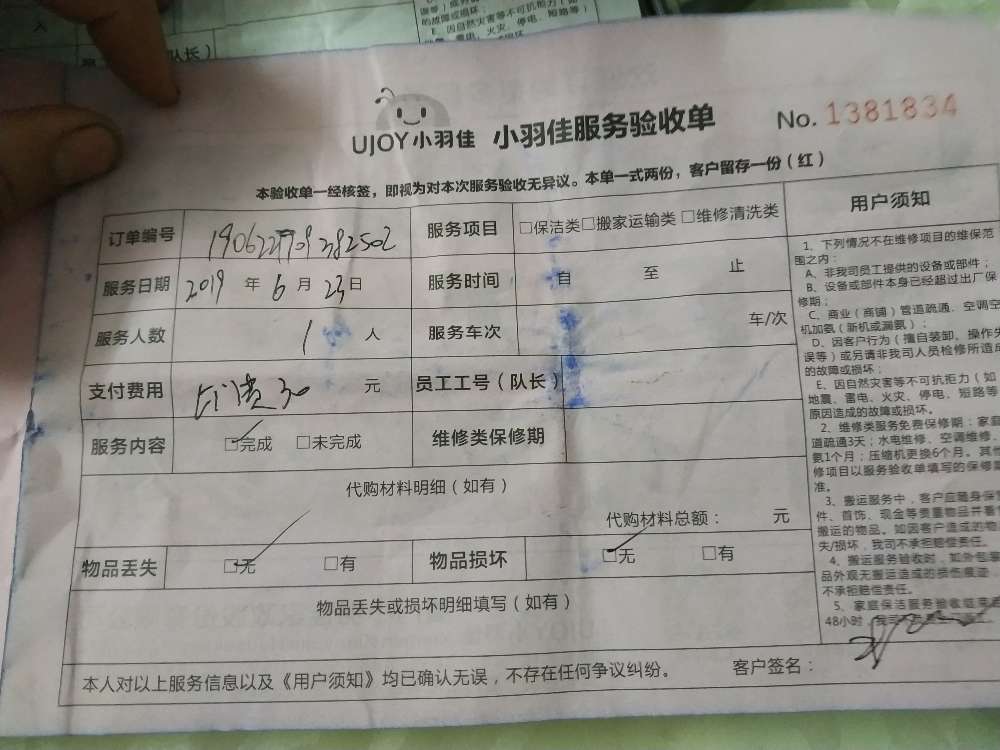 队长)
课等)或另
的故障或损坏;
E、因自然灾害等不可抗力(如
地震、雷电、火灾、停电、短路等)
UJOY小羽佳 小羽佳服务验收单 No. 1381834
本验收单一经核签,即视为对本次服务验收无异议。本单一式两份,客户留存一份(红)
订单编号 服务项目 □保洁类□搬家运输类 □维修清洗类
服务日期 2019 年 6 月 23 日 服务时间 自 至 止
服务人数 1 人 服务车次 车/次
支付费用 上门费30 元 员工工号(队长)
服务内容 □完成 □未完成 维修类保修期
代购材料明细(如有)
代购材料总额: 元
物品丢失 □无 □有 物品损坏 □无 □有
物品丢失或损坏明细填写(如有)
本人对以上服务信息以及《用户须知》均已确认无误,不存在任何争议纠纷。 客户签名:
用户须知
1、下列情况不在维修项目的维保范
围之内:
A、非我司员工提供的设备或部件;
B、设备或部件本身已经超过出厂保
修期;
C、商业(商铺)管道疏通、空调空
机加氨(新机或漏氨);
D、因客户行为(擅自装卸、操作失
误等)或另请非我司人员检修所造成
的故障或损坏;
E、因自然灾害等不可抗力(如
地震、雷电、火灾、停电、短路等
原因造成的故障或损坏。
2、维修类服务免费保修期:家庭
道疏通3天;水电维修、空调维修、
氨1个月;压缩机更换6个月。其他
修项目以服务验收单填写的保修期
准。
3、搬运服务中,客户应随身保管
件、首饰、现金等贵重物品并看
搬运的物品。如因客户造成的物
失/损坏,我司不承担赔偿责任。
4、搬运服务验收时,如外包装
品外观无搬运造成的损伤痕迹,
不承担赔偿责任。
5、家庭保洁服务验收
48小时,我司不